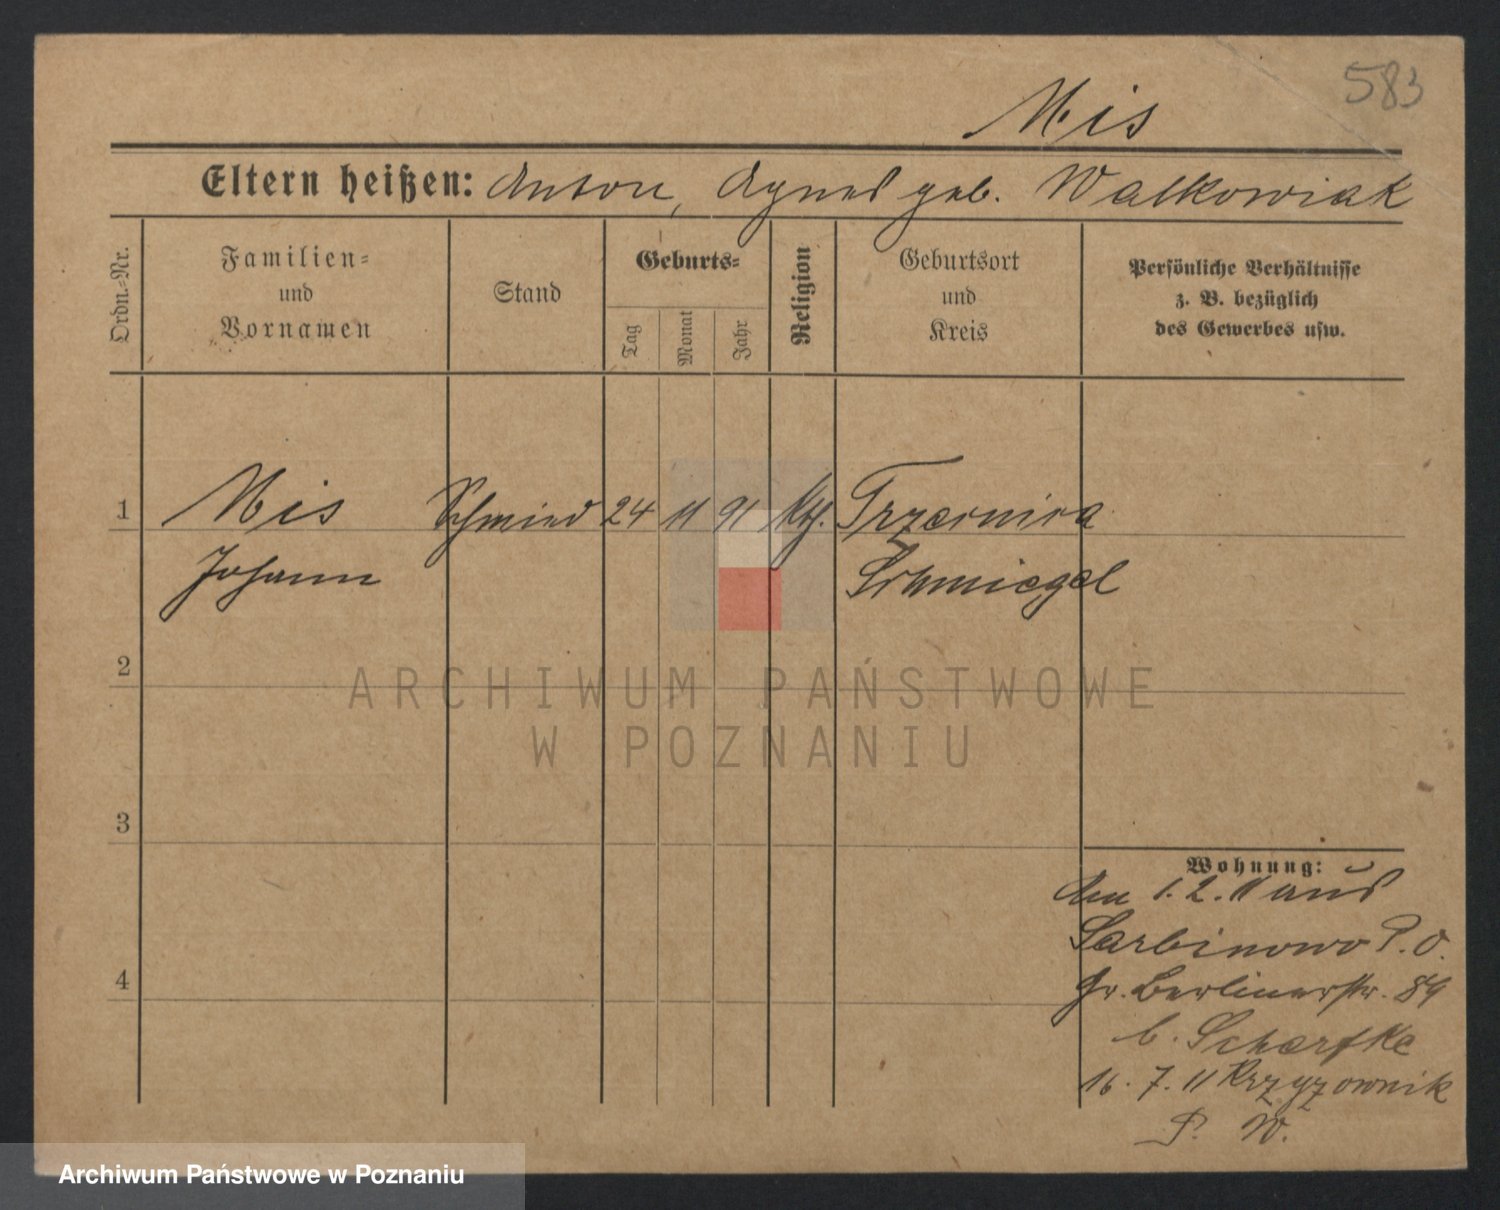 583
Mis
Eltern heißen: Anton, Agnes geb. Walkowiak
Ordn.-Nr.
Familien-
und
Vornamen
Stand
Geburts-
Tag
Monat
Jahr
Religion
Geburtsort
und
Kreis
Persönliche Verhältnisse
z. B. bezüglich
des Gewerbes usw.
1 Mis Schmied 24 11 91 Kth.
Johann Schmiegel
2
ARCHIWUM PAŃSTWOWE
W POZNANIU
3
4
Wohnung:
Am 1. 2. 11 aus
Sarbinowo P. O.
Gr. Berlinerstr. 89
b. Scherfke
16. 7. 11 Krzyzownik
P. W.
Archiwum Państwowe w Poznaniu